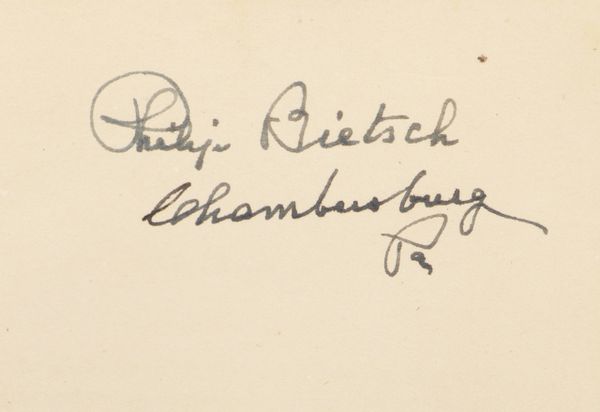 Philip Bietsch
Chambersburg
Pa